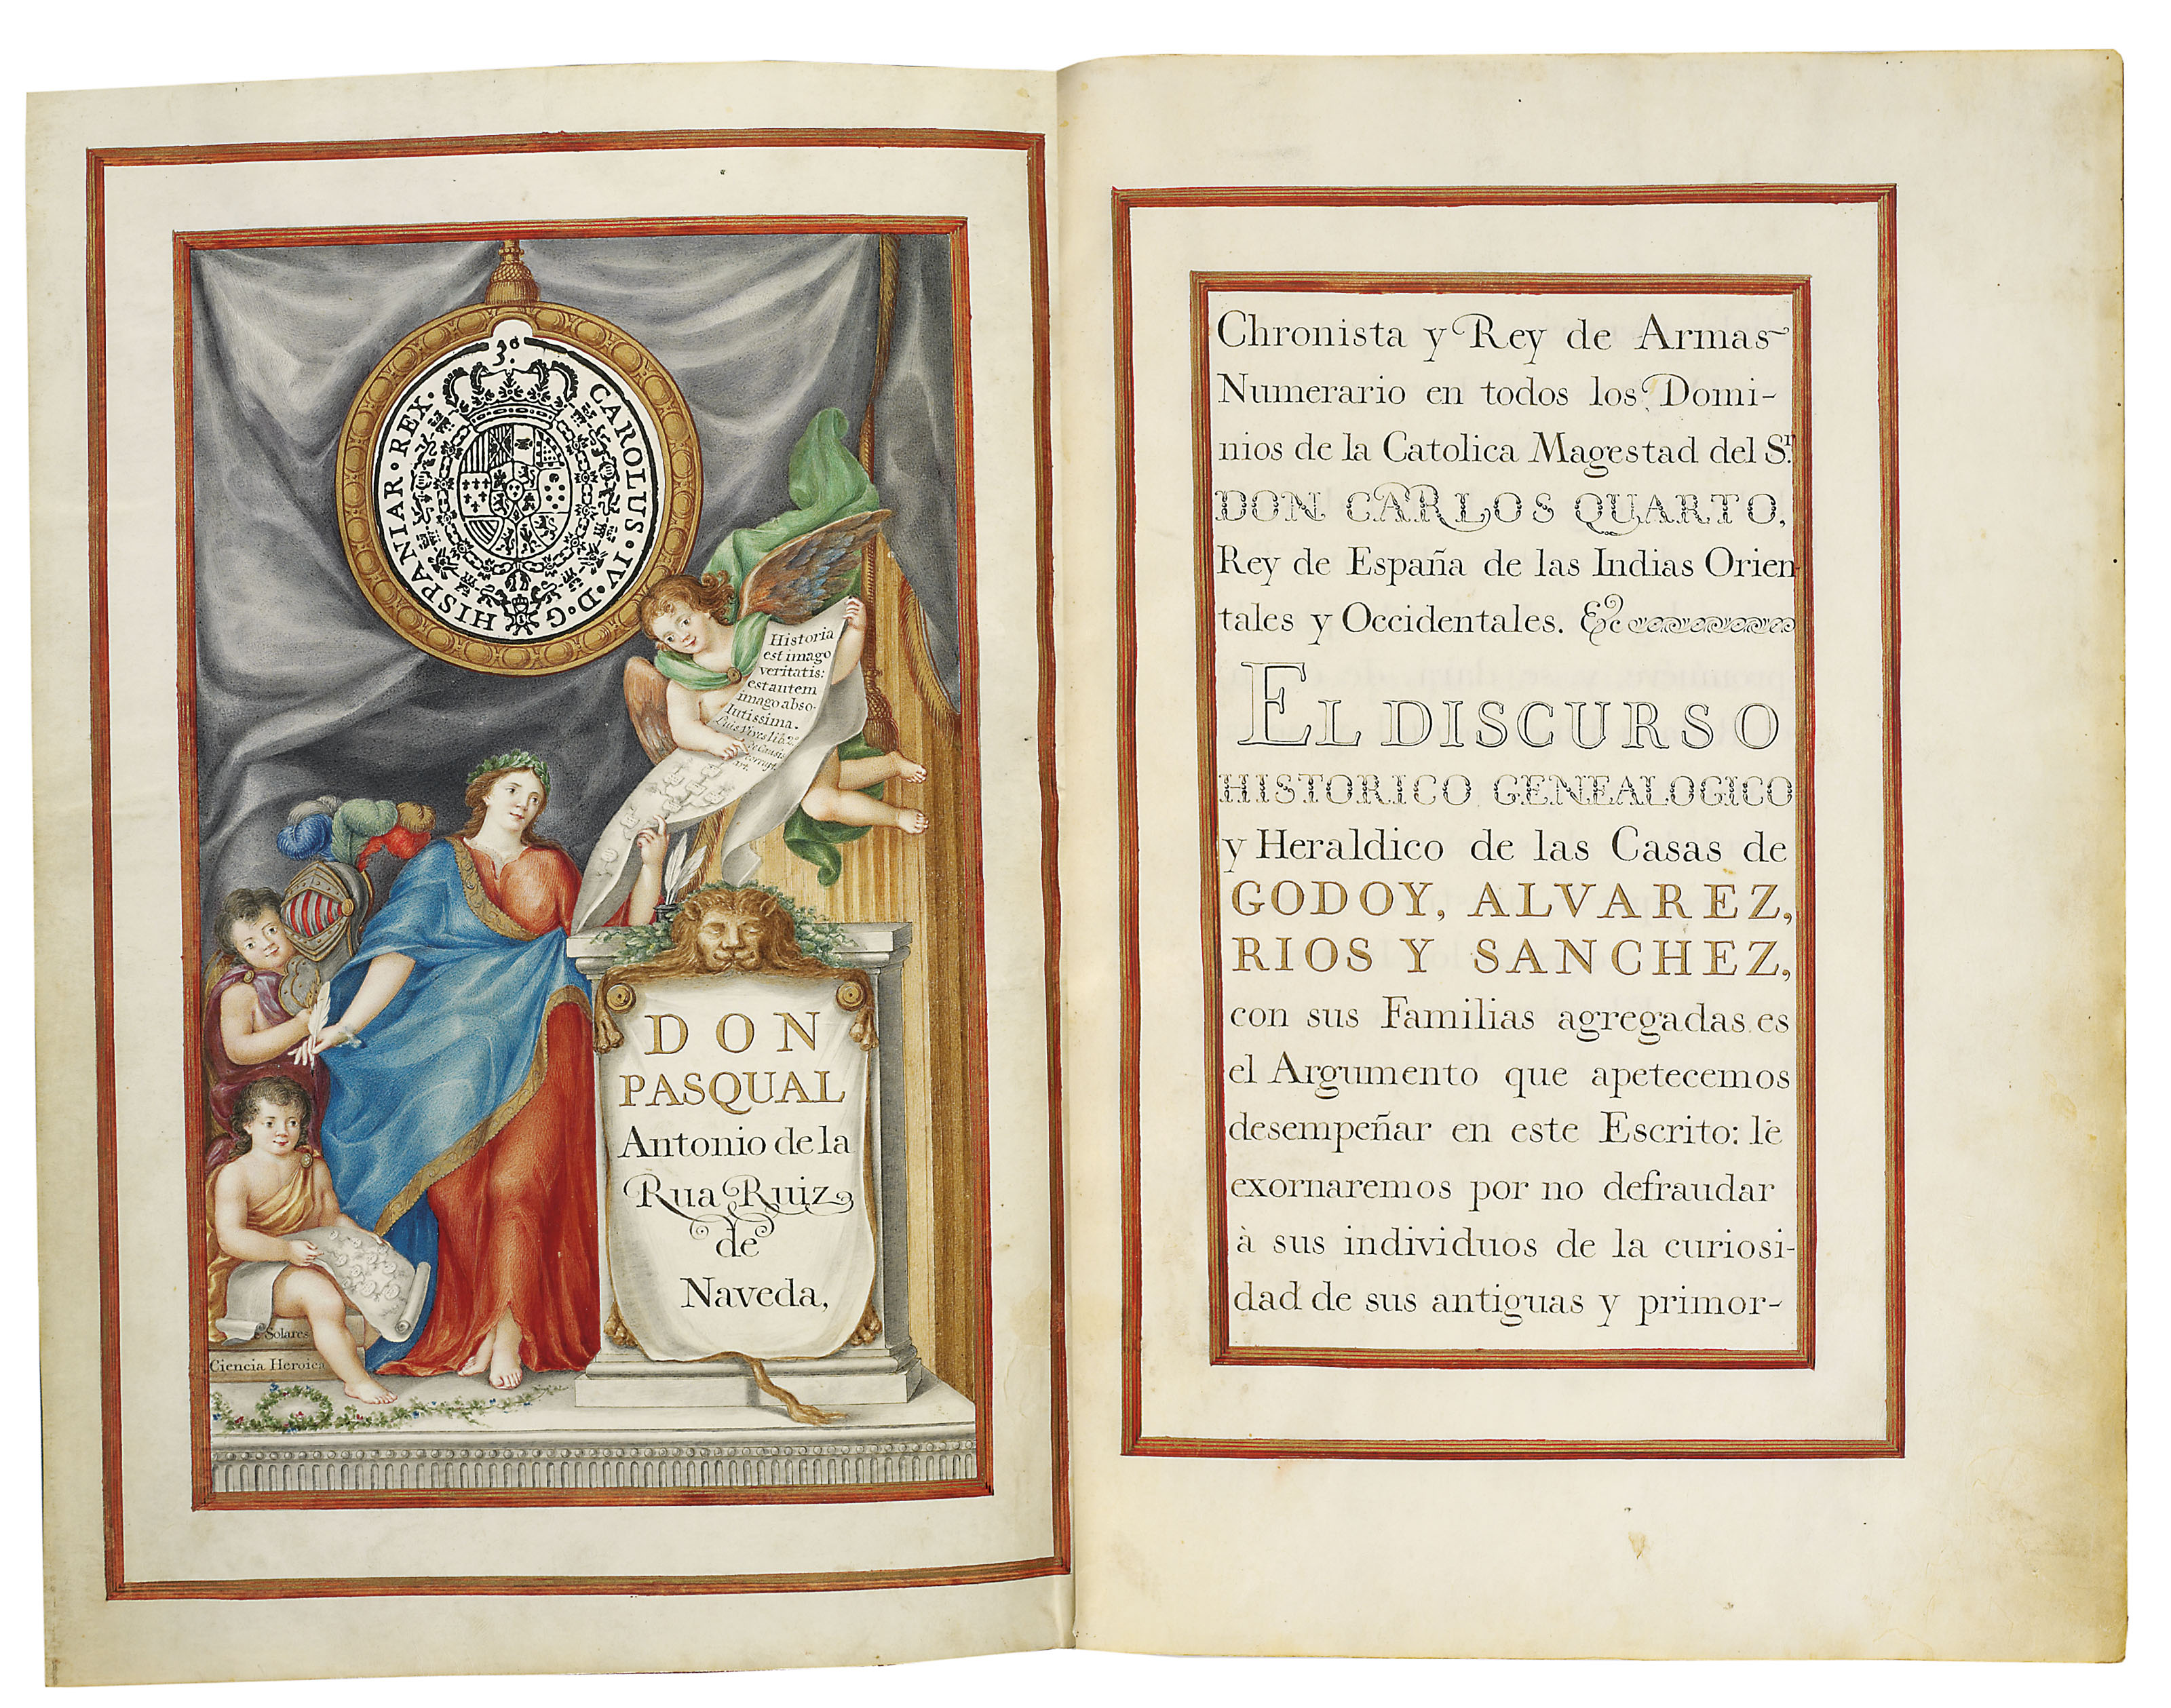 3.º
CAROLUS · IV · D · G · HISPANIAR · REX ·
Historia
est imago
veritatis:
est autem
imago abso-
lutissima.
Luis Vives lib. 2.º
de Causis
corrupt.
art.
DON
PASQUAL
Antonio de la
Rua Ruiz
de
Naveda,
Solares
Ciencia Heroica
Chronista y Rey de Armas
Numerario en todos los Domi-
nios de la Catolica Magestad del S.r
DON CARLOS QUARTO,
Rey de España de las Indias Orien
tales y Occidentales. &c
EL DISCURSO
HISTORICO GENEALOGICO
y Heraldico de las Casas de
GODOY, ALVAREZ,
RIOS Y SANCHEZ,
con sus Familias agregadas es
el Argumento que apetecemos
desempeñar en este Escrito: lè
exornaremos por no defraudar
à sus individuos de la curiosi-
dad de sus antiguas y primor-